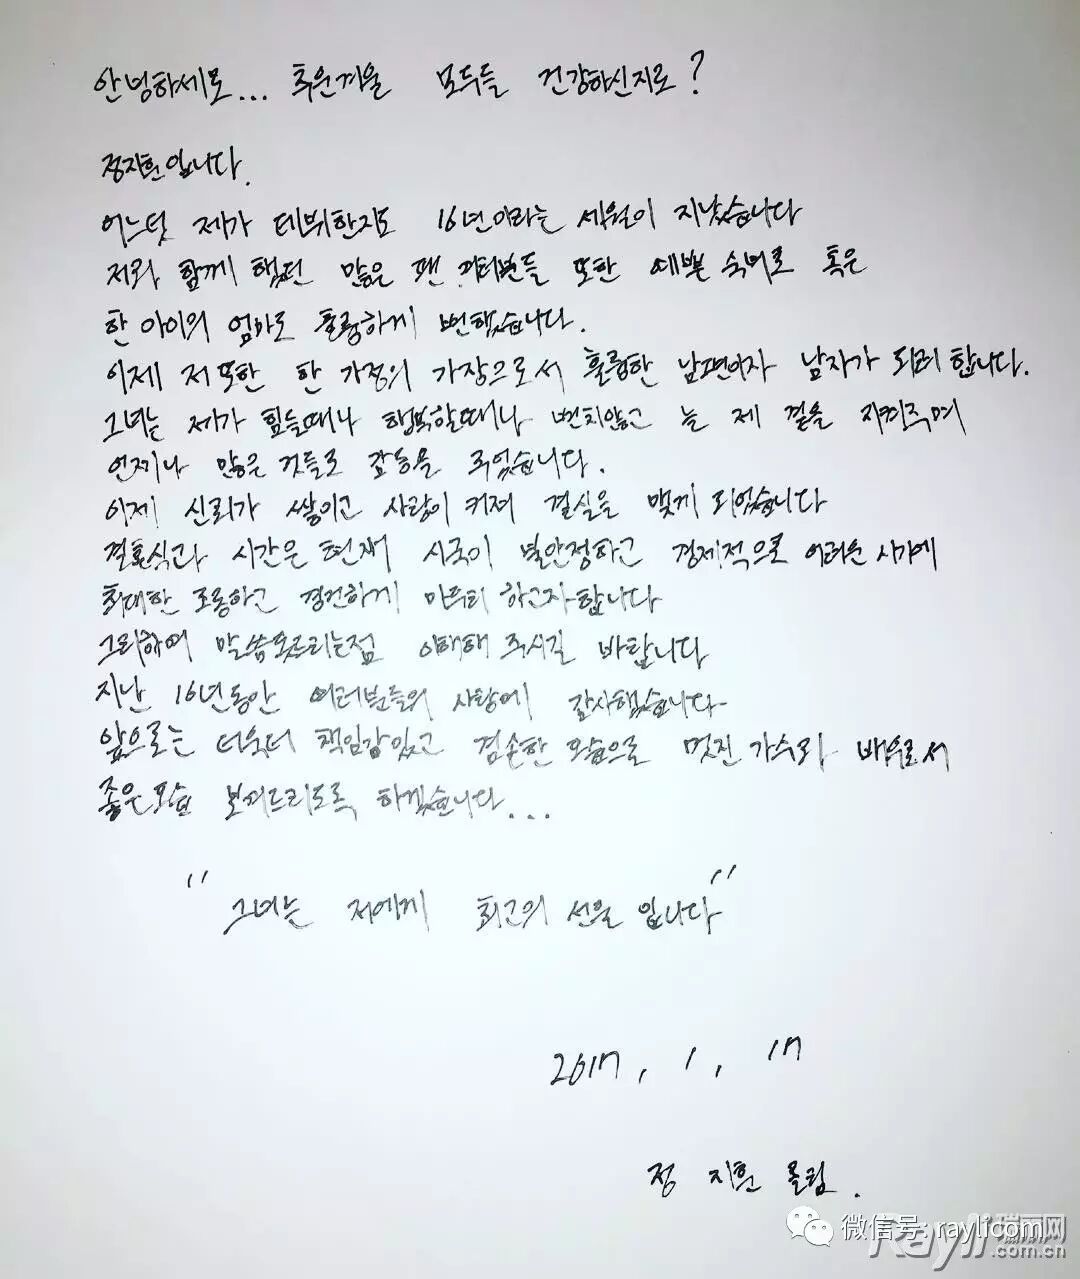 안녕하세요... 추운겨울 모두들 건강하신지요?
정지훈입니다.
어느덧 제가 데뷔한지도 16년이라는 세월이 지났습니다
저와 함께 했던 많은 팬 여러분들 또한 예쁜 숙녀로 혹은
한 아이의 엄마로 훌륭하게 변했습니다.
이제 저 또한 한 가정의 가장으로서 훌륭한 남편이자 남자가 되려 합니다.
그녀는 제가 힘들때나 행복할때나 변치않고 늘 제 곁을 지켜주며
언제나 많은 것들로 감동을 주었습니다.
이제 신뢰가 쌓이고 사랑이 커져 결실을 맺게 되었습니다
결혼식과 시간은 현재 시국이 불안정하고 경제적으로 어려운 시기에
최대한 조용하고 경건하게 마무리 하고자합니다
그리하여 말씀못드리는점 이해해 주시길 바랍니다
지난 16년동안 여러분들의 사랑에 감사했습니다
앞으로는 더욱더 책임감있고 겸손한 모습으로 멋진 가수와 배우로서
좋은모습 보여드리도록 하겠습니다...
"그녀는 저에게 최고의 선물 입니다"
2017, 1, 17
정 지훈 올림.
微信号: raylicom
Rayli 瑞丽网
.com.cn